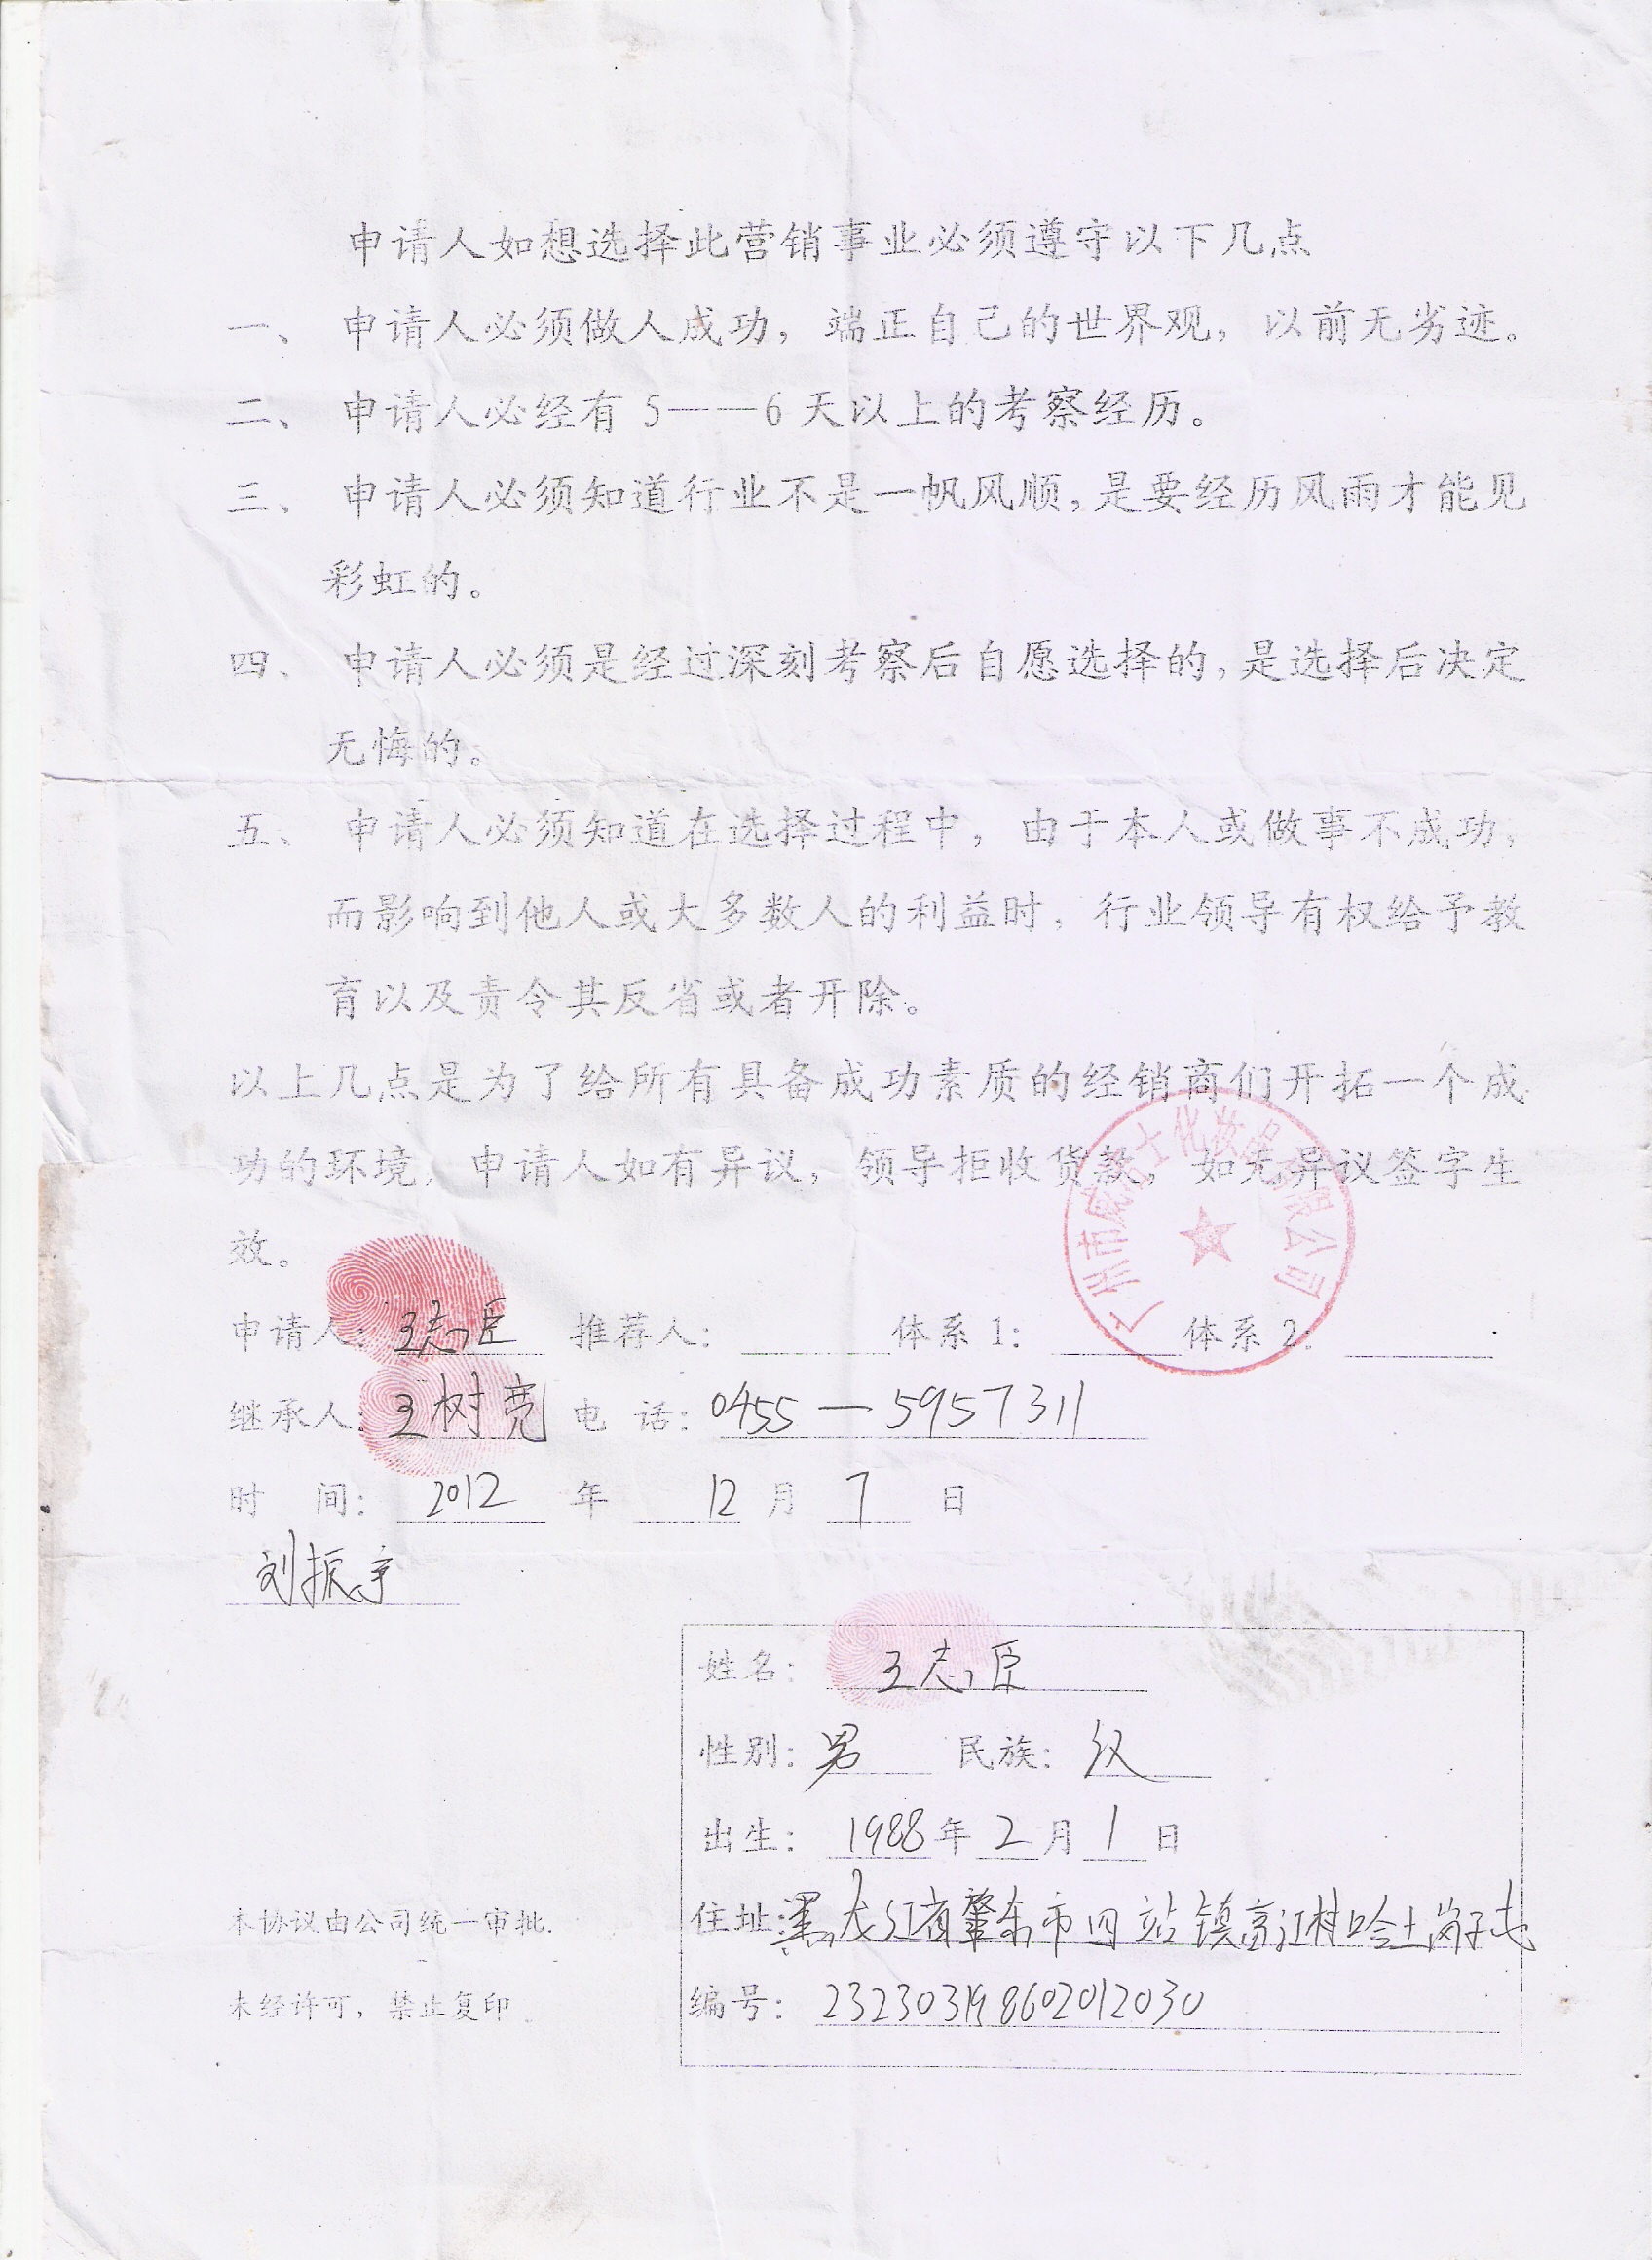 申请人如想选择此营销事业必须遵守以下几点
一、 申请人必须做人成功，端正自己的世界观，以前无劣迹。
二、 申请人必经有 5——6 天以上的考察经历。
三、 申请人必须知道行业不是一帆风顺，是要经历风雨才能见
彩虹的。
四、 申请人必须是经过深刻考察后自愿选择的，是选择后决定
无悔的。
五、 申请人必须知道在选择过程中，由于本人或做事不成功，
而影响到他人或大多数人的利益时，行业领导有权给予教
育以及责令其反省或者开除。
以上几点是为了给所有具备成功素质的经销商们开拓一个成
功的环境，申请人如有异议，领导拒收货款，如无异议签字生
效。
广州市威 士化妆品有限公司
申请人：王志臣 推荐人： 体系 1： 体系 2：
继承人：王树宽 电 话：0455—5957311
时 间：2012 年 12 月 7 日
刘振宇
姓名：王志臣
性别：男 民族：汉
出生：1988年2月1日
住址：黑龙江省肇东市四站镇富江村哈土岗子屯
编号：232303198602012030
本协议由公司统一审批.
未经许可，禁止复印